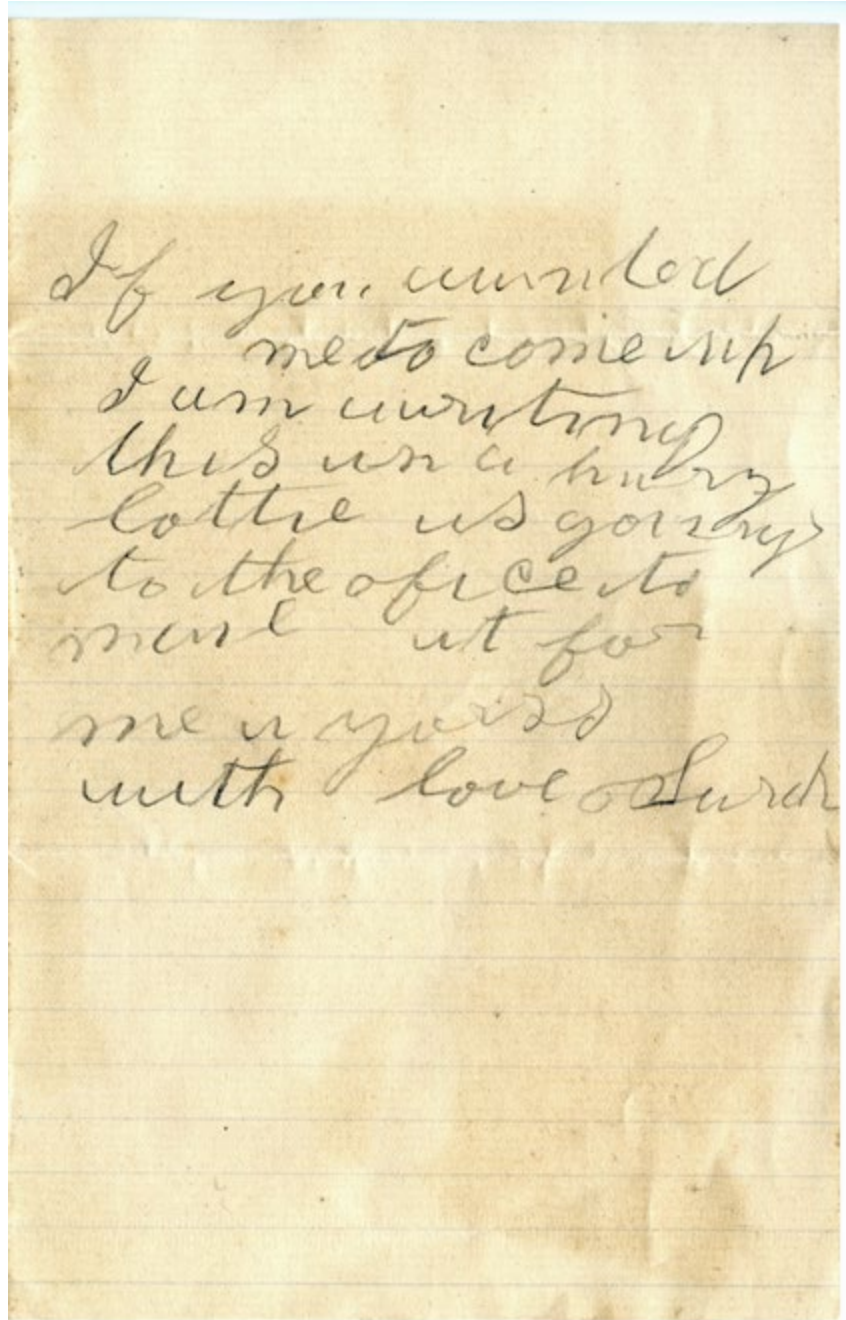 If you wanted
me to come up
I am writing
this in a hurry
lottie is going
to the ofice to
mail it for
me
with love Sarah